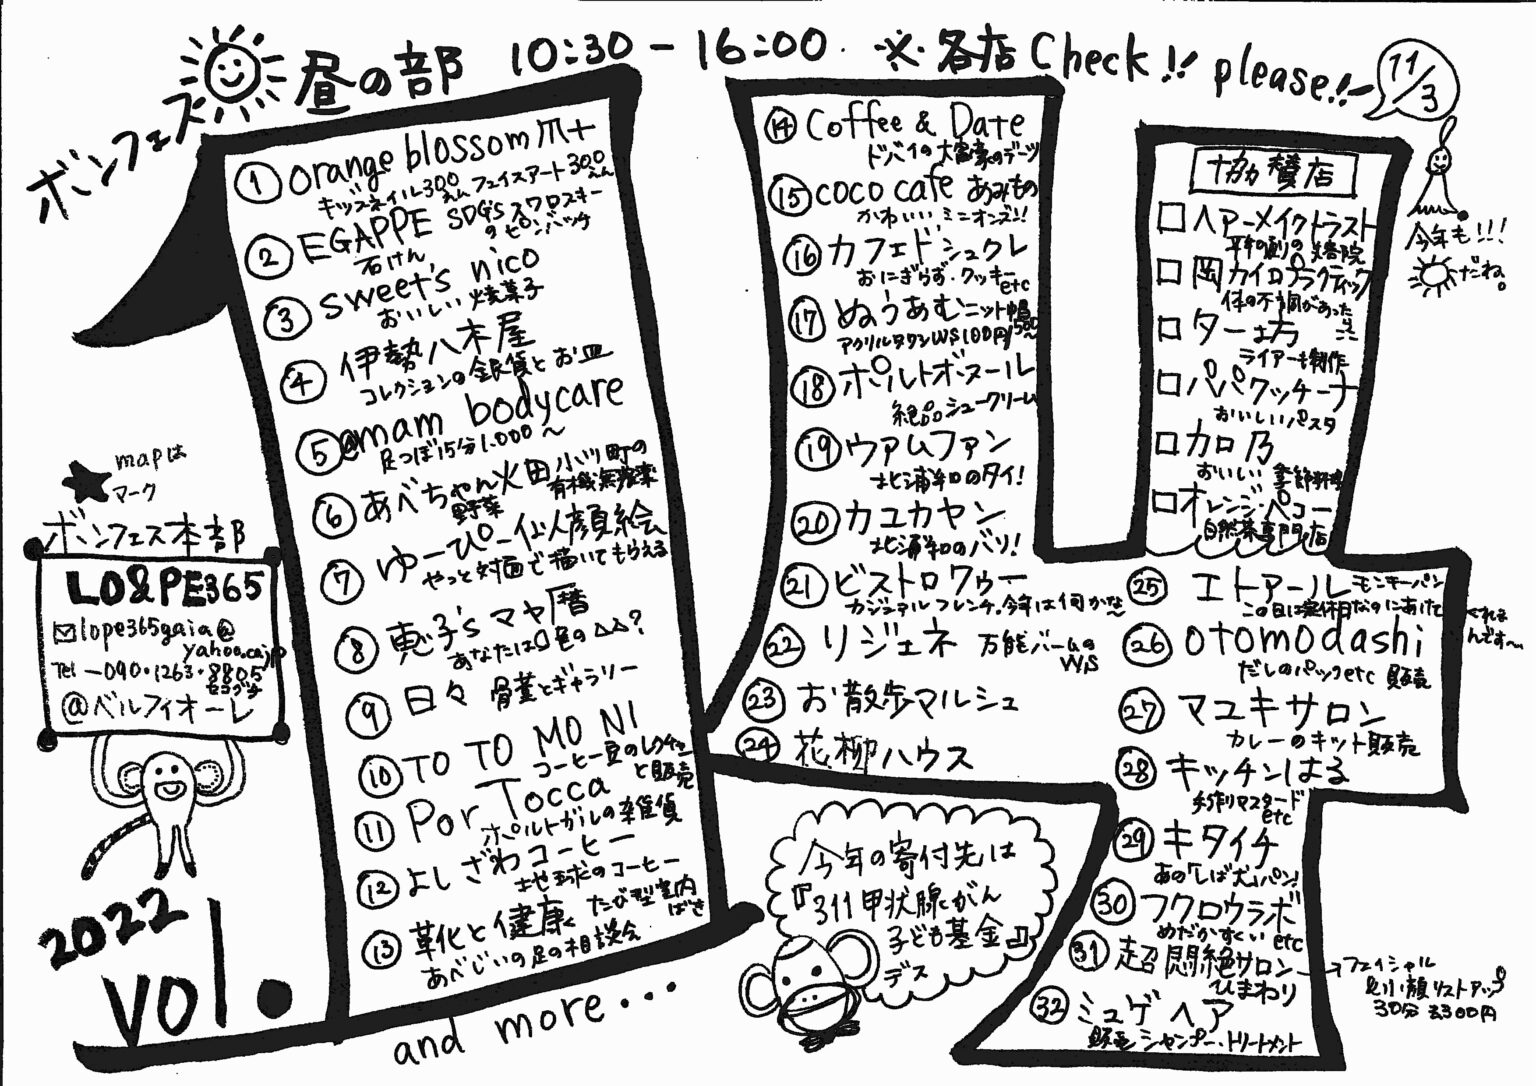 ボンフェス 昼の部 10:30-16:00 ※各店Check!! please!!
11/3
今年も!!!
だね。
① orange blossom 爪+
キッズネイル300えん フェイスアート300えん
② EGAPPE SDG's スワロスキーのピンバッチ
石けん
③ sweet's nico
おいしい焼菓子
④ 伊勢八木屋
コレクションの銀貨とお皿
⑤ @mam bodycare
足つぼ15分1.000〜
⑥ あべちゃん火田 小川町の有機無農薬
野菜
⑦ ゆーぴー似人顔絵
やっと対面で描いてもらえる
⑧ 恵子'sマヤ暦
あなたは□色の△△?
⑨ 日々 骨董とギャラリー
⑩ TO TO MO NI
コーヒー豆のレクチャーと販売
⑪ Por Tocca
ポルトガルの雑貨
⑫ よしざわコーヒー
地球のコーヒー
⑬ 革化と健康 たび型室内ばき
あべじいの足の相談会
and more...
⑭ Coffee & Date
ドバイの大富豪のデーツ
⑮ coco cafe あみもの
かわいいミニオンズ!!
⑯ カフェドシュクレ
おにぎらず・クッキーetc
⑰ ぬうあむ ニット帽500〜
アクリルタワシWS100円
⑱ ポルトボヌール
絶品シュークリーム
⑲ ヴァムファン
北浦和のタイ!
⑳ カユカヤン
北浦和のバリ!
㉑ ビストロワゥー
カジュアルフレンチ。今年は何かな〜
㉒ リジェネ 万能バームのWS
㉓ お散歩マルシェ
㉔ 花柳ハウス
協賛店
□ ヘアーメイクトラスト
平和通りの美容院
□ 岡カイロプラクティック
体の不調があったらここ
□ ター坊
ライアー制作
□ パパクッチーナ
おいしいパスタ
□ カロ乃
おいしい季節料理
□ オレンジ・ペコー
自然茶専門店
㉕ エトアール モンキーパン
この日は定休日なのにあけてくれるんです〜
㉖ otomodashi
だしのパックetc 販売
㉗ マユキサロン
カレーのキット販売
㉘ キッチンはる
手作りマスタードetc
㉙ キタイチ
あの「しば犬」パン!
㉚ フクロウラボ
めだかすくいetc
㉛ 超悶絶サロンひまわり→フェイシャル
小顔リフトアップ
30分3300円
㉜ ミュゲヘア
販売 シャンプー・トリートメント
mapは
★マーク
ボンフェス本部
LO&PE365
✉lope365gaia@
yahoo.co.jp
Tel—090・1263・8805
セコグチ
@ベルフィオーレ
2022
vol.
14
今年の寄付先は
『311甲状腺がん
子ども基金』
デス